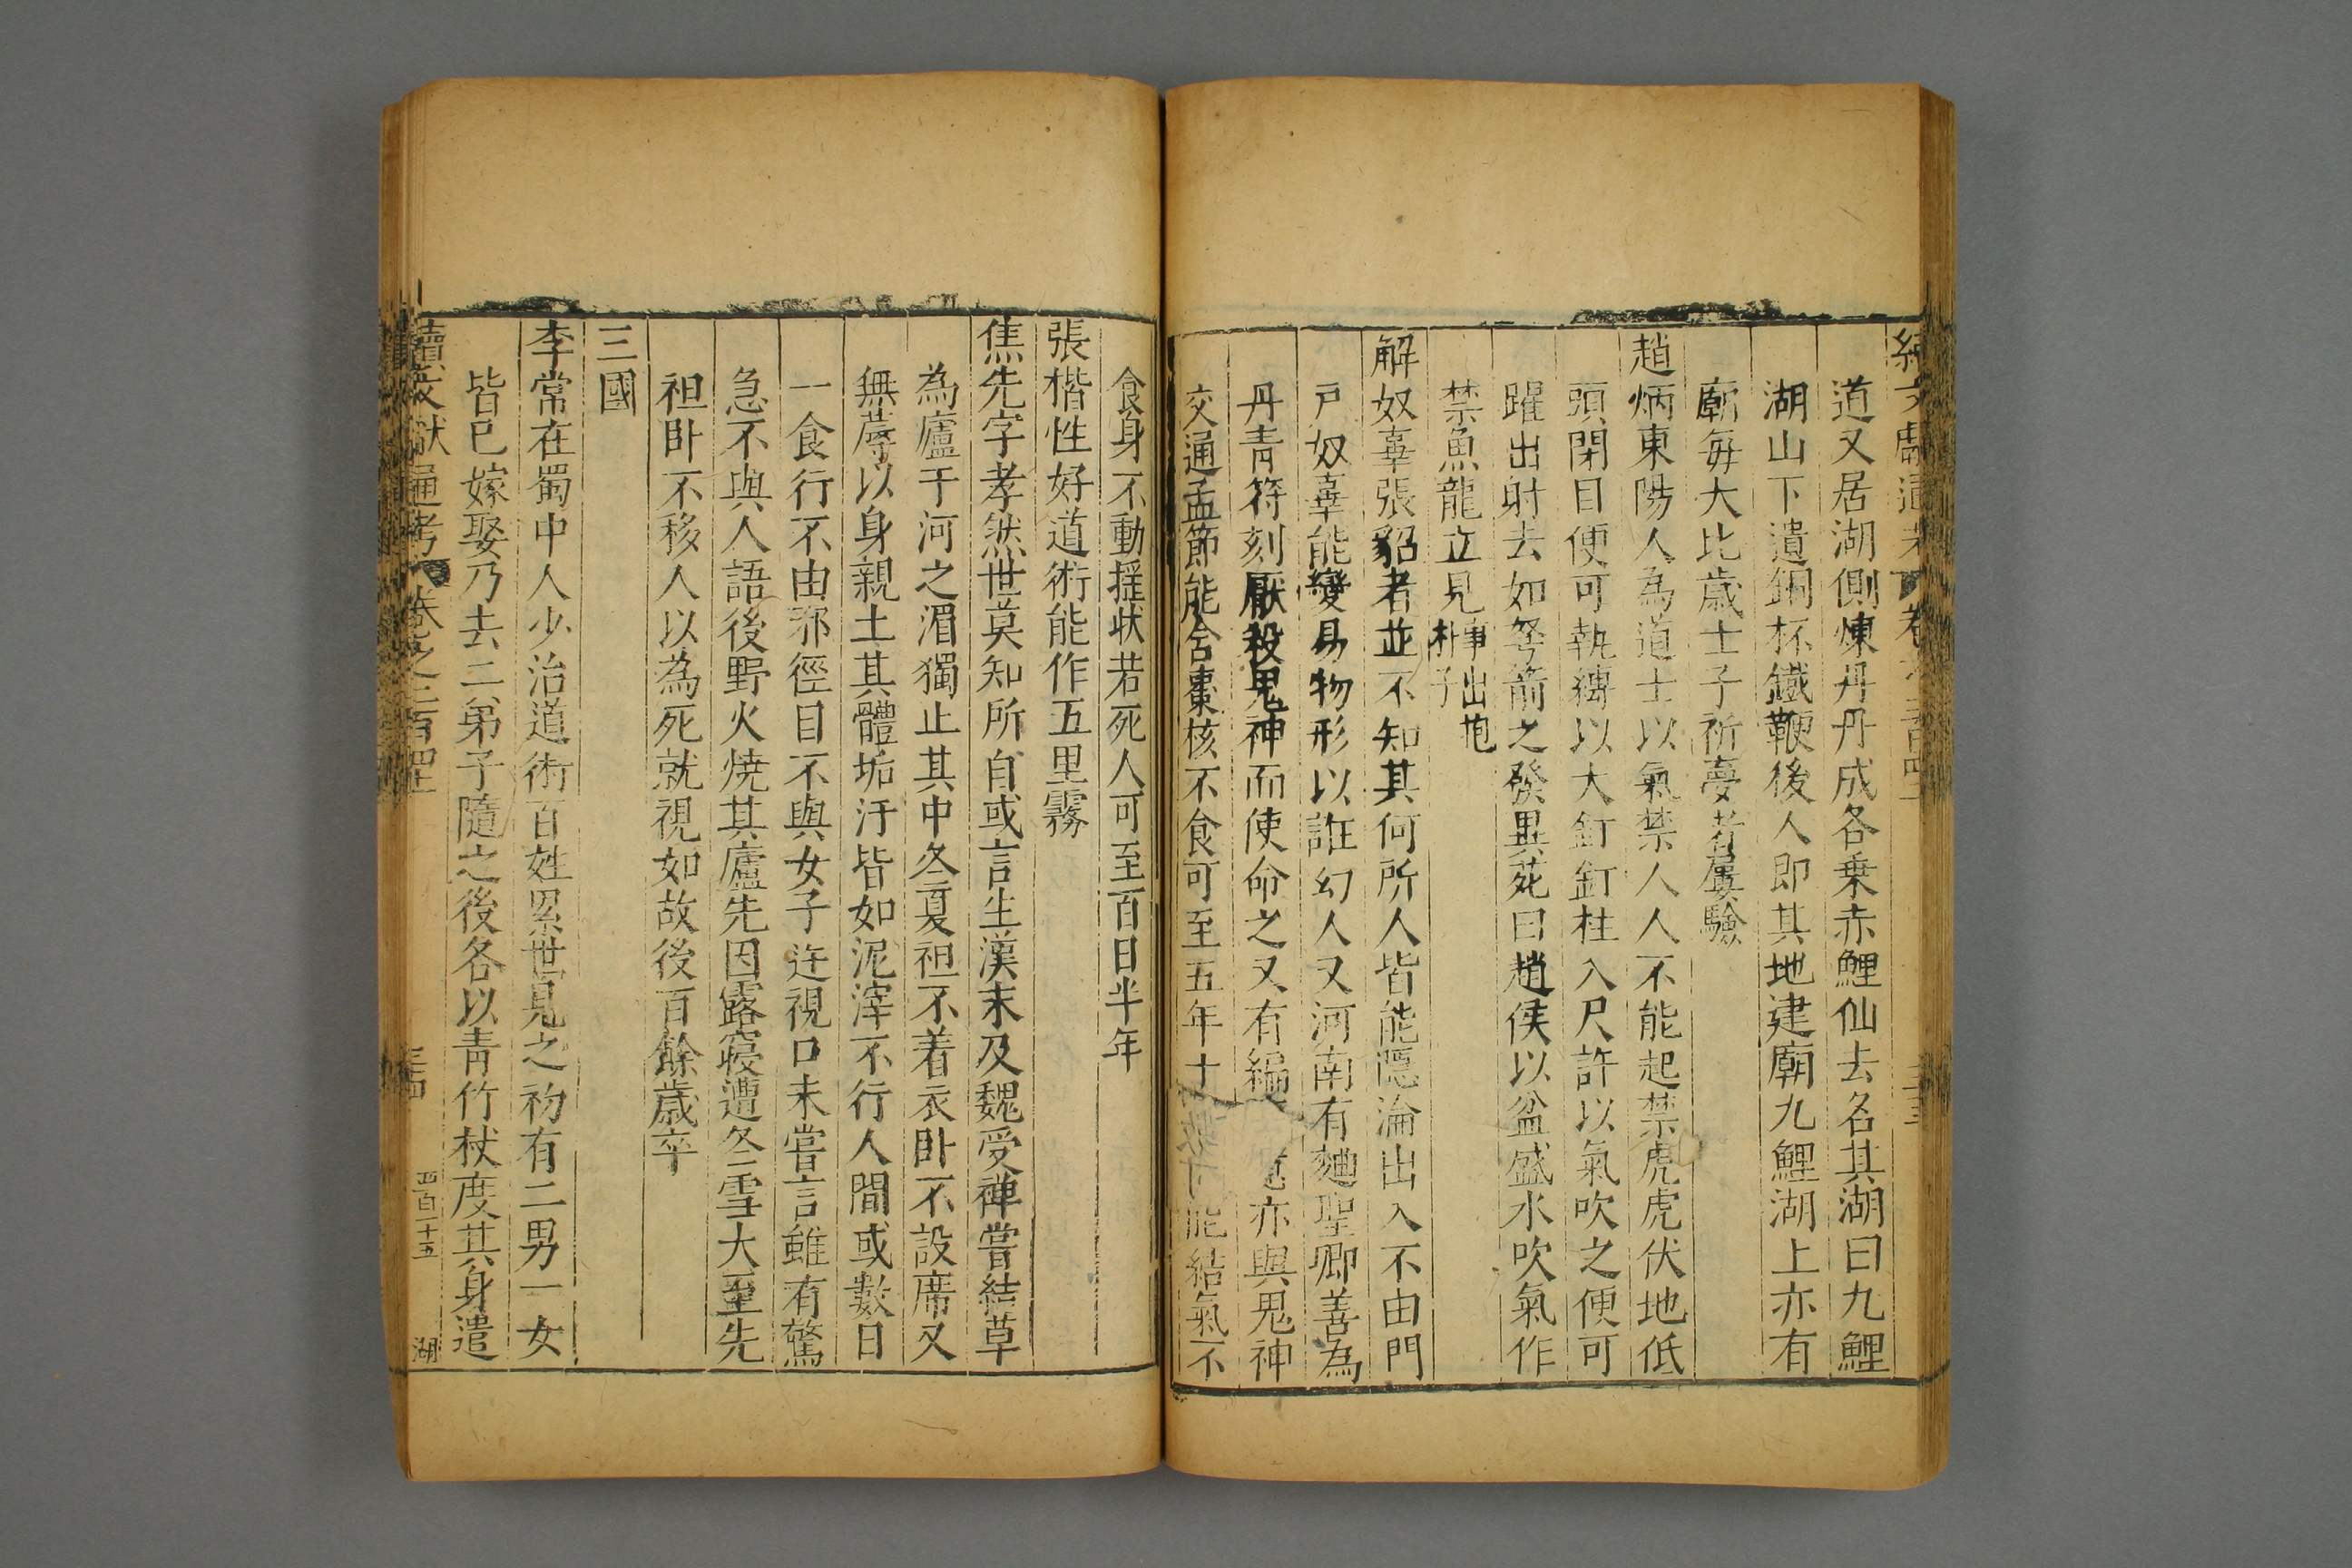 道又居湖側煉丹丹成各乗赤鯉仙去名其湖曰九鯉
湖山下遺銅杯鐵鞭後人即其地建廟九鯉湖上亦有
廟每大比歳士子祈夢者屢驗
趙炳東陽人為道士以氣禁人人不能起禁虎虎伏地低
頭閉目便可執縛以大釘釘柱入尺許以氣吹之便可
躍出射去如弩箭之發異苑曰趙侯以盆盛水吹氣作
禁魚龍立見事出抱朴子
解奴辜張貂者並不知其何所人皆能隱淪出入不由門
戸奴辜能變易物形以誑幻人又河南有麹聖卿善為
丹青符刻厭殺鬼神而使命之又有編亦與鬼神
交通孟節能含棗核不食可至五年十能結氣不
食身不動揺状若死人可至百日半年
張楷性好道術能作五里霧
焦先字孝然世莫知所自或言生漢末及魏受禅嘗結草
為廬于河之湄獨止其中冬夏袒不着衣卧不設席又
無蓐以身親土其體垢汙皆如泥滓不行人間或數日
一食行不由邪徑目不與女子迕視口未嘗言雖有驚
急不與人語後野火燒其廬先因露寢遭冬雪大至先
袒卧不移人以為死就視如故後百餘歳卒
三國
李常在蜀中人少治道術百姓累世見之初有二男一女
皆已嫁娶乃去二弟子隨之後各以青竹杖度其身遣
續文獻通考 卷之二百四十 三四 四百二十五 湖